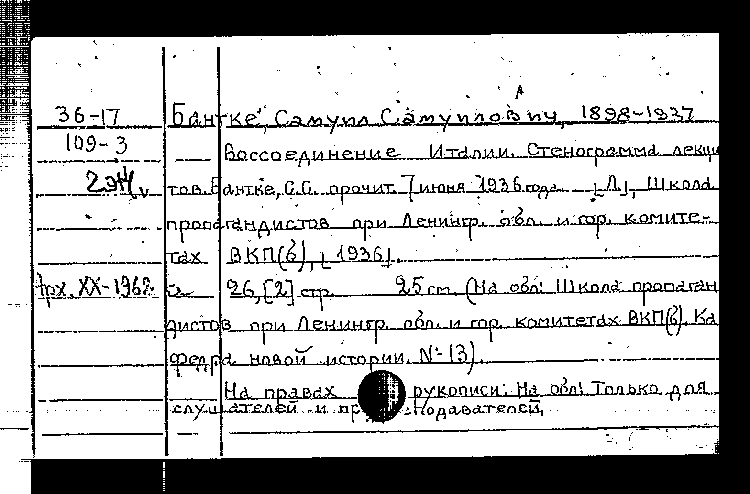 36-17 Бантке, Самуил Самуилович, 1898-1937
109-3 Воссоединение Италии. Стенограмма лекци
2эж тов. Бантке, С.С. прочит. 7 июня 1936 года. [Л], Школа
пропагандистов при Ленингр. обл. и гор. комите-
тах ВКП(б), [1936].
Арх. XX-1962 26, [2] стр. 25 см. (На обл: Школа пропаган
дистов при Ленингр. обл. и гор. комитетах ВКП(б). Ка
федра новой истории. № 13).
На правах рукописи. На обл: Только для
слушателей и преподавателей.